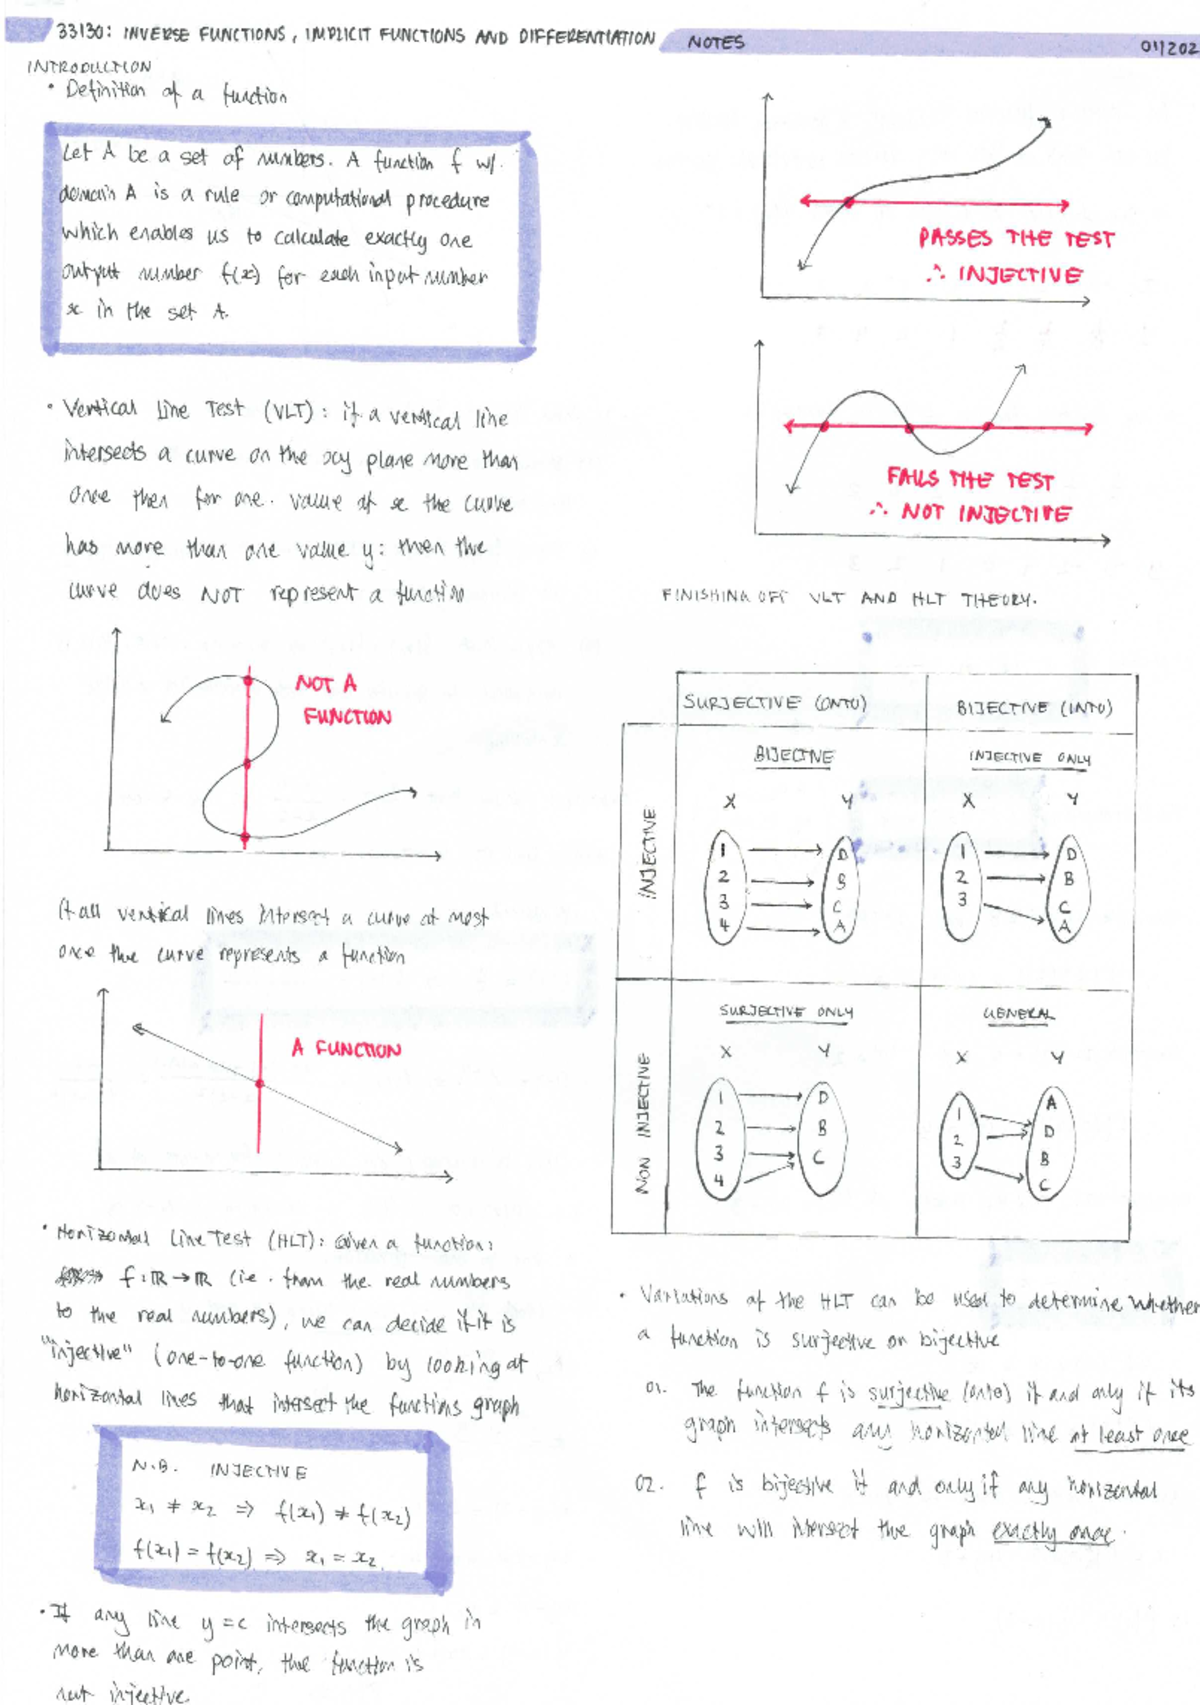 33130: INVERSE FUNCTIONS, IMPLICIT FUNCTIONS AND DIFFERENTIATION NOTES 01/202
INTRODUCTION
• Definition of a function
Let A be a set of numbers. A function f w/.
domain A is a rule or computational procedure
which enables us to calculate exactly one
output number f(x) for each input number
x in the set A.
• Vertical Line Test (VLT): if a vertical line
intersects a curve on the xy plane more than
once then for one. value of x the curve
has more than one value y: then the
curve does NOT represent a function
NOT A
FUNCTION
If all vertical lines intersect a curve at most
once the curve represents a function
A FUNCTION
• Horizontal Line Test (HLT): Given a function:
f: ℝ → ℝ (i.e. from the real numbers
to the real numbers), we can decide if it is
"injective" (one-to-one function) by looking at
horizontal lines that intersect the functions graph
N.B. INJECTIVE
x₁ ≠ x₂ ⇒ f(x₁) ≠ f(x₂)
f(x₁) = f(x₂) ⇒ x₁ = x₂.
• If any line y = c intersects the graph in
more than one point, the function is
not injective
PASSES THE TEST
∴ INJECTIVE
FAILS THE TEST
∴ NOT INJECTIVE
FINISHING OFF VLT AND HLT THEORY.
SURJECTIVE (ONTO) BIJECTIVE (INTO)
INJECTIVE
BIJECTIVE
X Y
1 D
2 B
3 C
4 A
INJECTIVE ONLY
X Y
1 D
2 B
3 C
A
NON INJECTIVE
SURJECTIVE ONLY
X Y
1 D
2 B
3 C
4
GENERAL
X Y
A
1 D
2 B
3 C
• Variations of the HLT can be used to determine whether
a function is surjective or bijective
01. The function f is surjective (onto) if and only if its
graph intersects any horizontal line at least once
02. f is bijective if and only if any horizontal
line will intersect the graph exactly once.